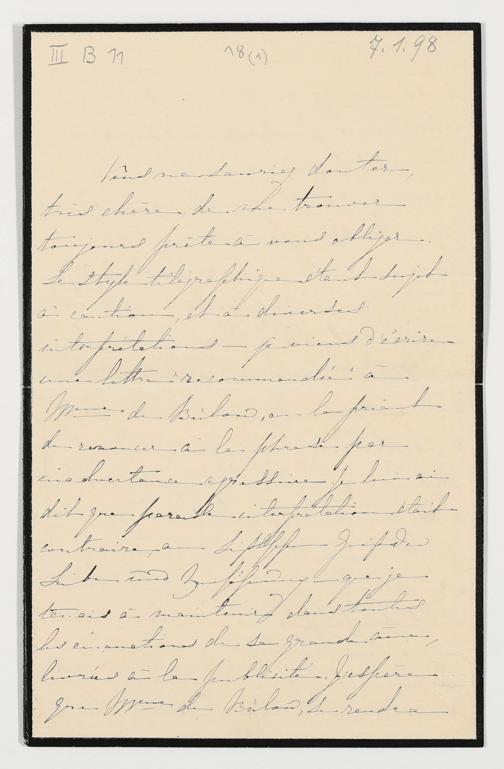 III B 11 18(1) 7.1.98
Vous ne sauriez douter,
très chère, de me trouver
toujours prête à vous obliger.
Le style télégraphique étant sujet
à caution, et à diverses
interprétations – je viens d'écrire
une lettre "recommandée" à
Mme de Bülow, en la priant
de renoncer à la phrase par
inadvertance agressive. Je lui ai
dit que pareille interprétation était
contraire, au
Liebe und que je
tenais à maintenir dans toutes
les émanations de sa grande âme,
livrées à la publicité. J'espère
que Mme de Bülow, se rendra